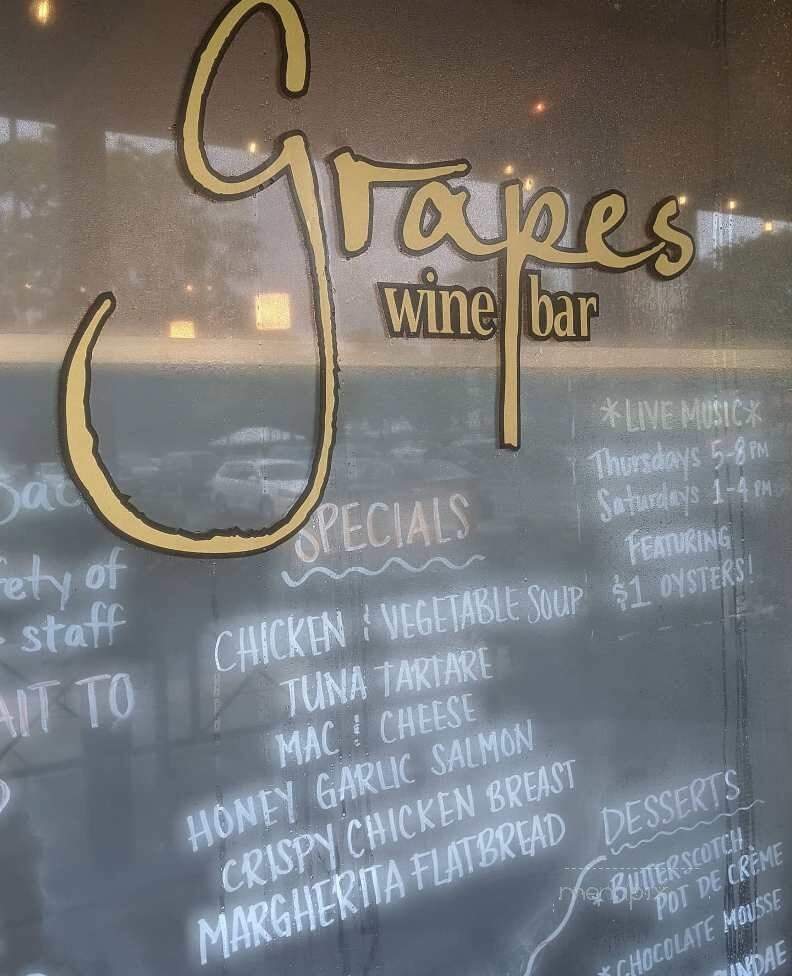 grapes
wine bar
*LIVE MUSIC*
Thursdays 5-8 PM
Saturdays 1-4 PM
FEATURING
$1 OYSTERS!
fety of
staff
AIT TO
SPECIALS
CHICKEN & VEGETABLE SOUP
TUNA TARTARE
MAC & CHEESE
HONEY GARLIC SALMON
CRISPY CHICKEN BREAST
MARGHERITA FLATBREAD
DESSERTS
*BUTTERSCOTCH
POT DE CRÈME
*CHOCOLATE MOUSSE
menupix